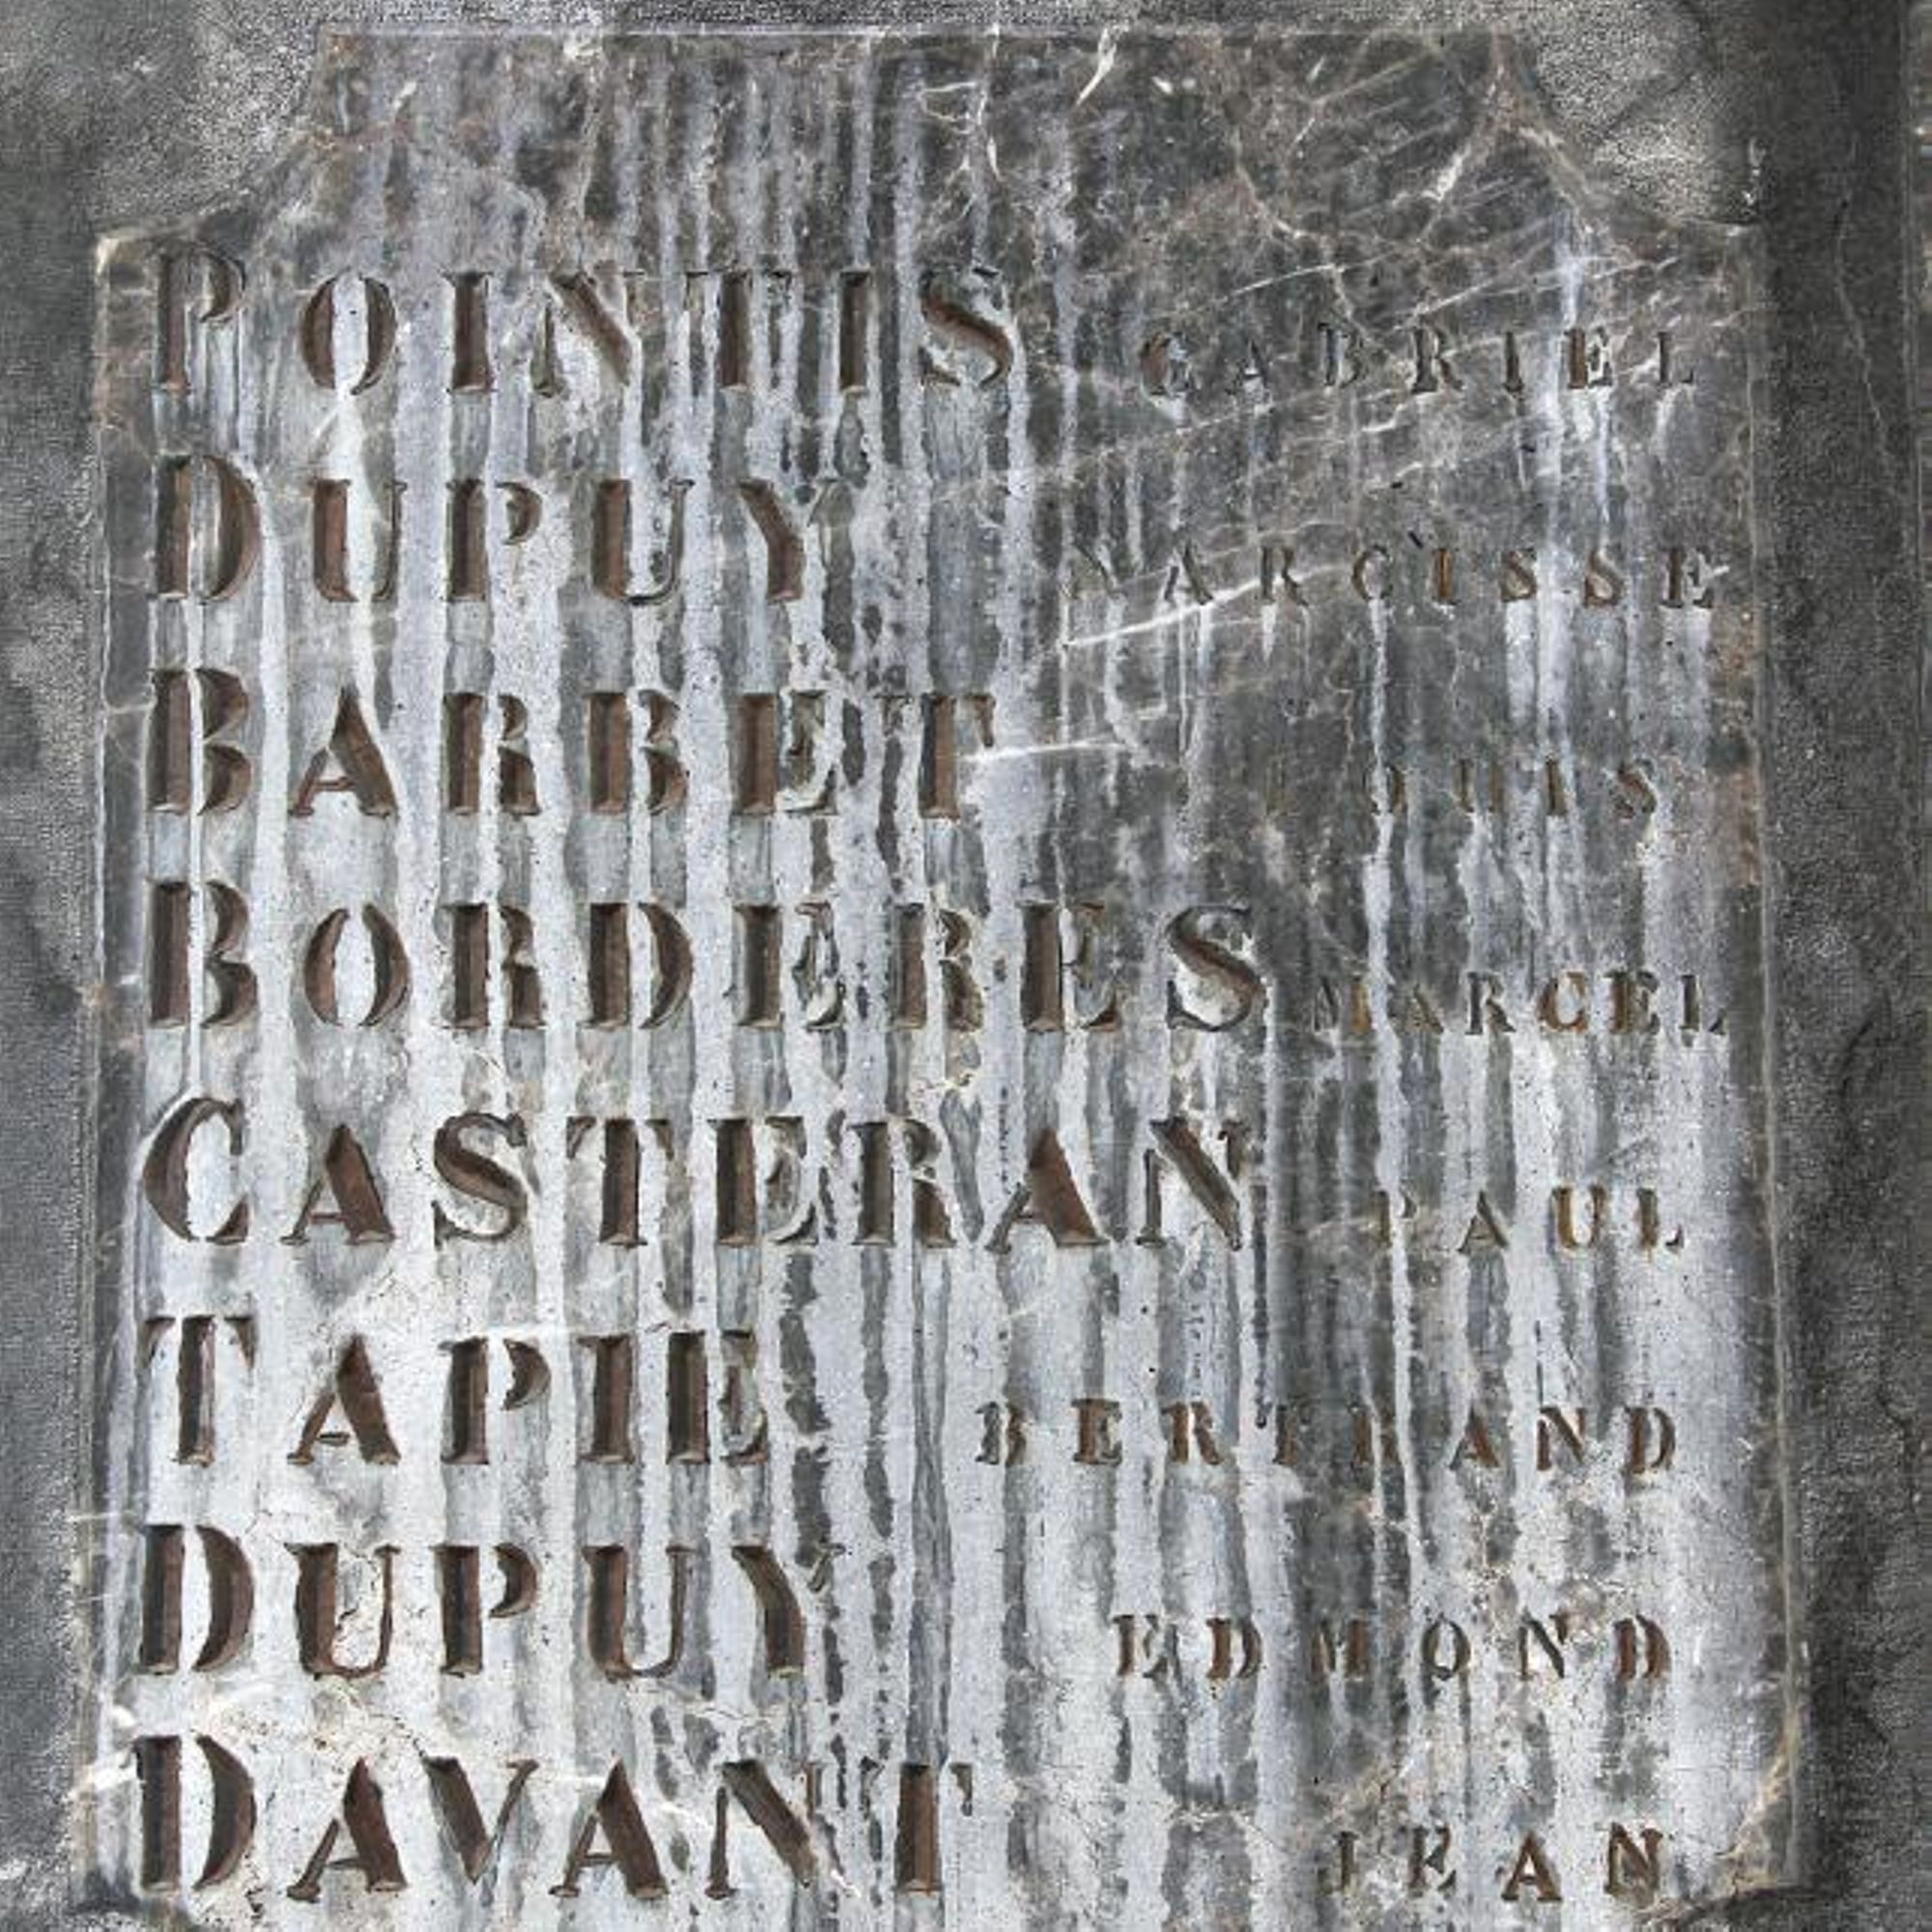 POINTIS GABRIEL
DUPUY NARCISSE
BARBET LOUIS
BORDERES MARCEL
CASTERAN PAUL
TAPIE BERTRAND
DUPUY EDMOND
DAVANT JEAN